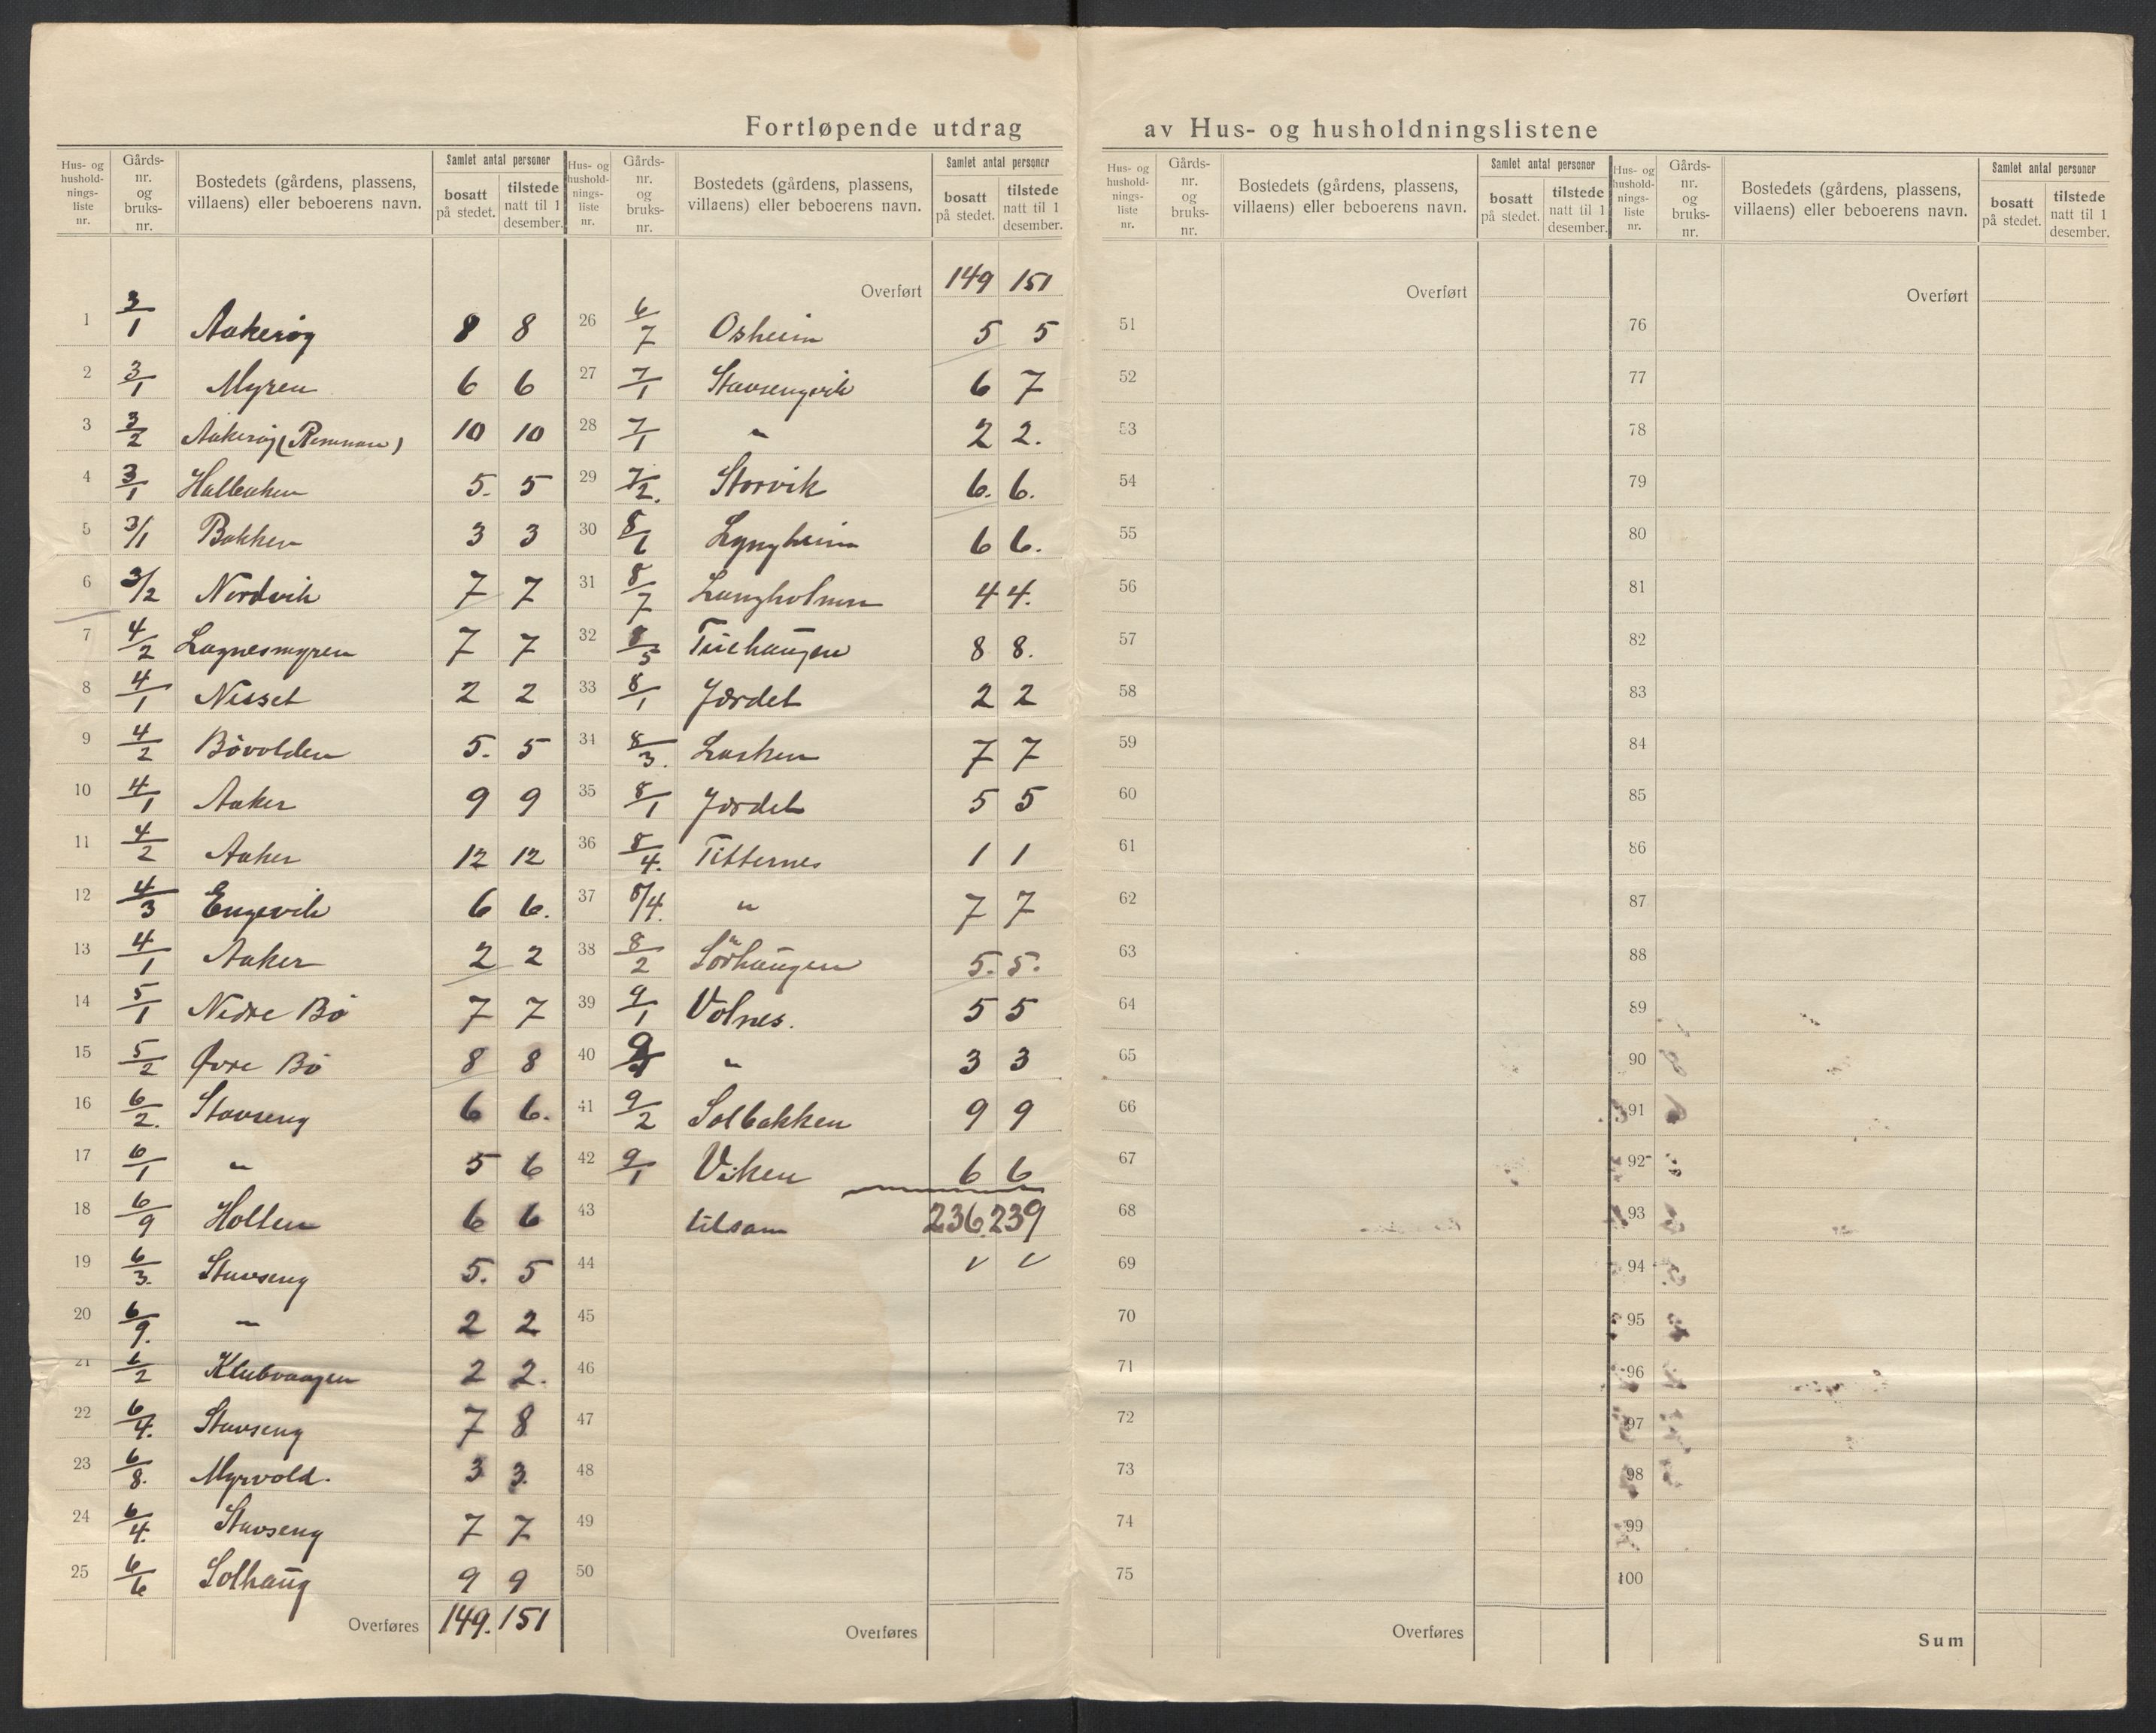 Fortløpende utdrag av Hus- og husholdningslistene
Hus- og husholdnings-liste nr. Gårds-nr. og bruks-nr. Bostedets (gårdens, plassens, villaens) eller beboerens navn. Samlet antal personer bosatt på stedet. tilstede natt til 1 desember.
1 3/1 Aakerøy 8 8
2 3/1 Myren 6 6
3 3/2 Aakerøy 10 10
4 3/1 5. 5
5 3/1 Bakken 3 3
6 3/2 Nordvik 7 7
7 4/2 Lagnesmyren 7 7
8 4/1 Nesset 2 2
9 4/2 Bøvolden 5. 5
10 4/1 Aaker 9 9
11 4/2 Aaker 12 12
12 4/3 Engevik 6 6.
13 4/1 Aaker 2 2
14 5/1 Nedre Bø 7 7
15 5/2 Øvre Bø 8 8
16 6/2. Stavseng 6 6.
17 6/1 " 5 6
18 6/9 Holten 6 6
19 6/3. Stavseng 5. 5
20 6/9. " 2 2
21 6/2 Klubvaagen 2 2.
22 6/4. Stavseng 7 8
23 6/8. Myrvold. 3 3.
24 6/4. Stavseng 7 7
25 6/6 Solhaug 9 9
Overføres 149. 151
Hus- og husholdnings-liste nr. Gårds-nr. og bruks-nr. Bostedets (gårdens, plassens, villaens) eller beboerens navn. Samlet antal personer bosatt på stedet. tilstede natt til 1 desember.
Overført 149 151
26 6/7 Osheim 5 5
27 7/1 Stavsengvik 6 7
28 7/1 " 2 2.
29 7/2. Storvik 6. 6.
30 8/6 Lyngheim 6 6.
31 8/7 Langholmen 4 4.
32 8/5 8 8.
33 8/1 Jordet 2 2
34 8/3. Lasken 7 7
35 8/1 Jordet 5 5
36 8/4. Titternes 1 1
37 8/4. " 7 7
38 8/2 Sørhaugen 5. 5.
39 9/1 Volnes. 5 5
40 9/1 " 3 3
41 9/2 Solbakken 9 9
42 9/1 Viken 6 6
43 tilsam 236. 239
44
45
46
47
48
49
50
Overføres
Hus- og husholdnings-liste nr. Gårds-nr. og bruks-nr. Bostedets (gårdens, plassens, villaens) eller beboerens navn. Samlet antal personer bosatt på stedet. tilstede natt til 1 desember.
Overført
51
52
53
54
55
56
57
58
59
60
61
62
63
64
65
66
67
68
69
70
71
72
73
74
75
Overføres
Hus- og husholdnings-liste nr. Gårds-nr. og bruks-nr. Bostedets (gårdens, plassens, villaens) eller beboerens navn. Samlet antal personer bosatt på stedet. tilstede natt til 1 desember.
Overført
76
77
78
79
80
81
82
83
84
85
86
87
88
89
90
91
92
93
94
95
96
97
98
99
100
Sum